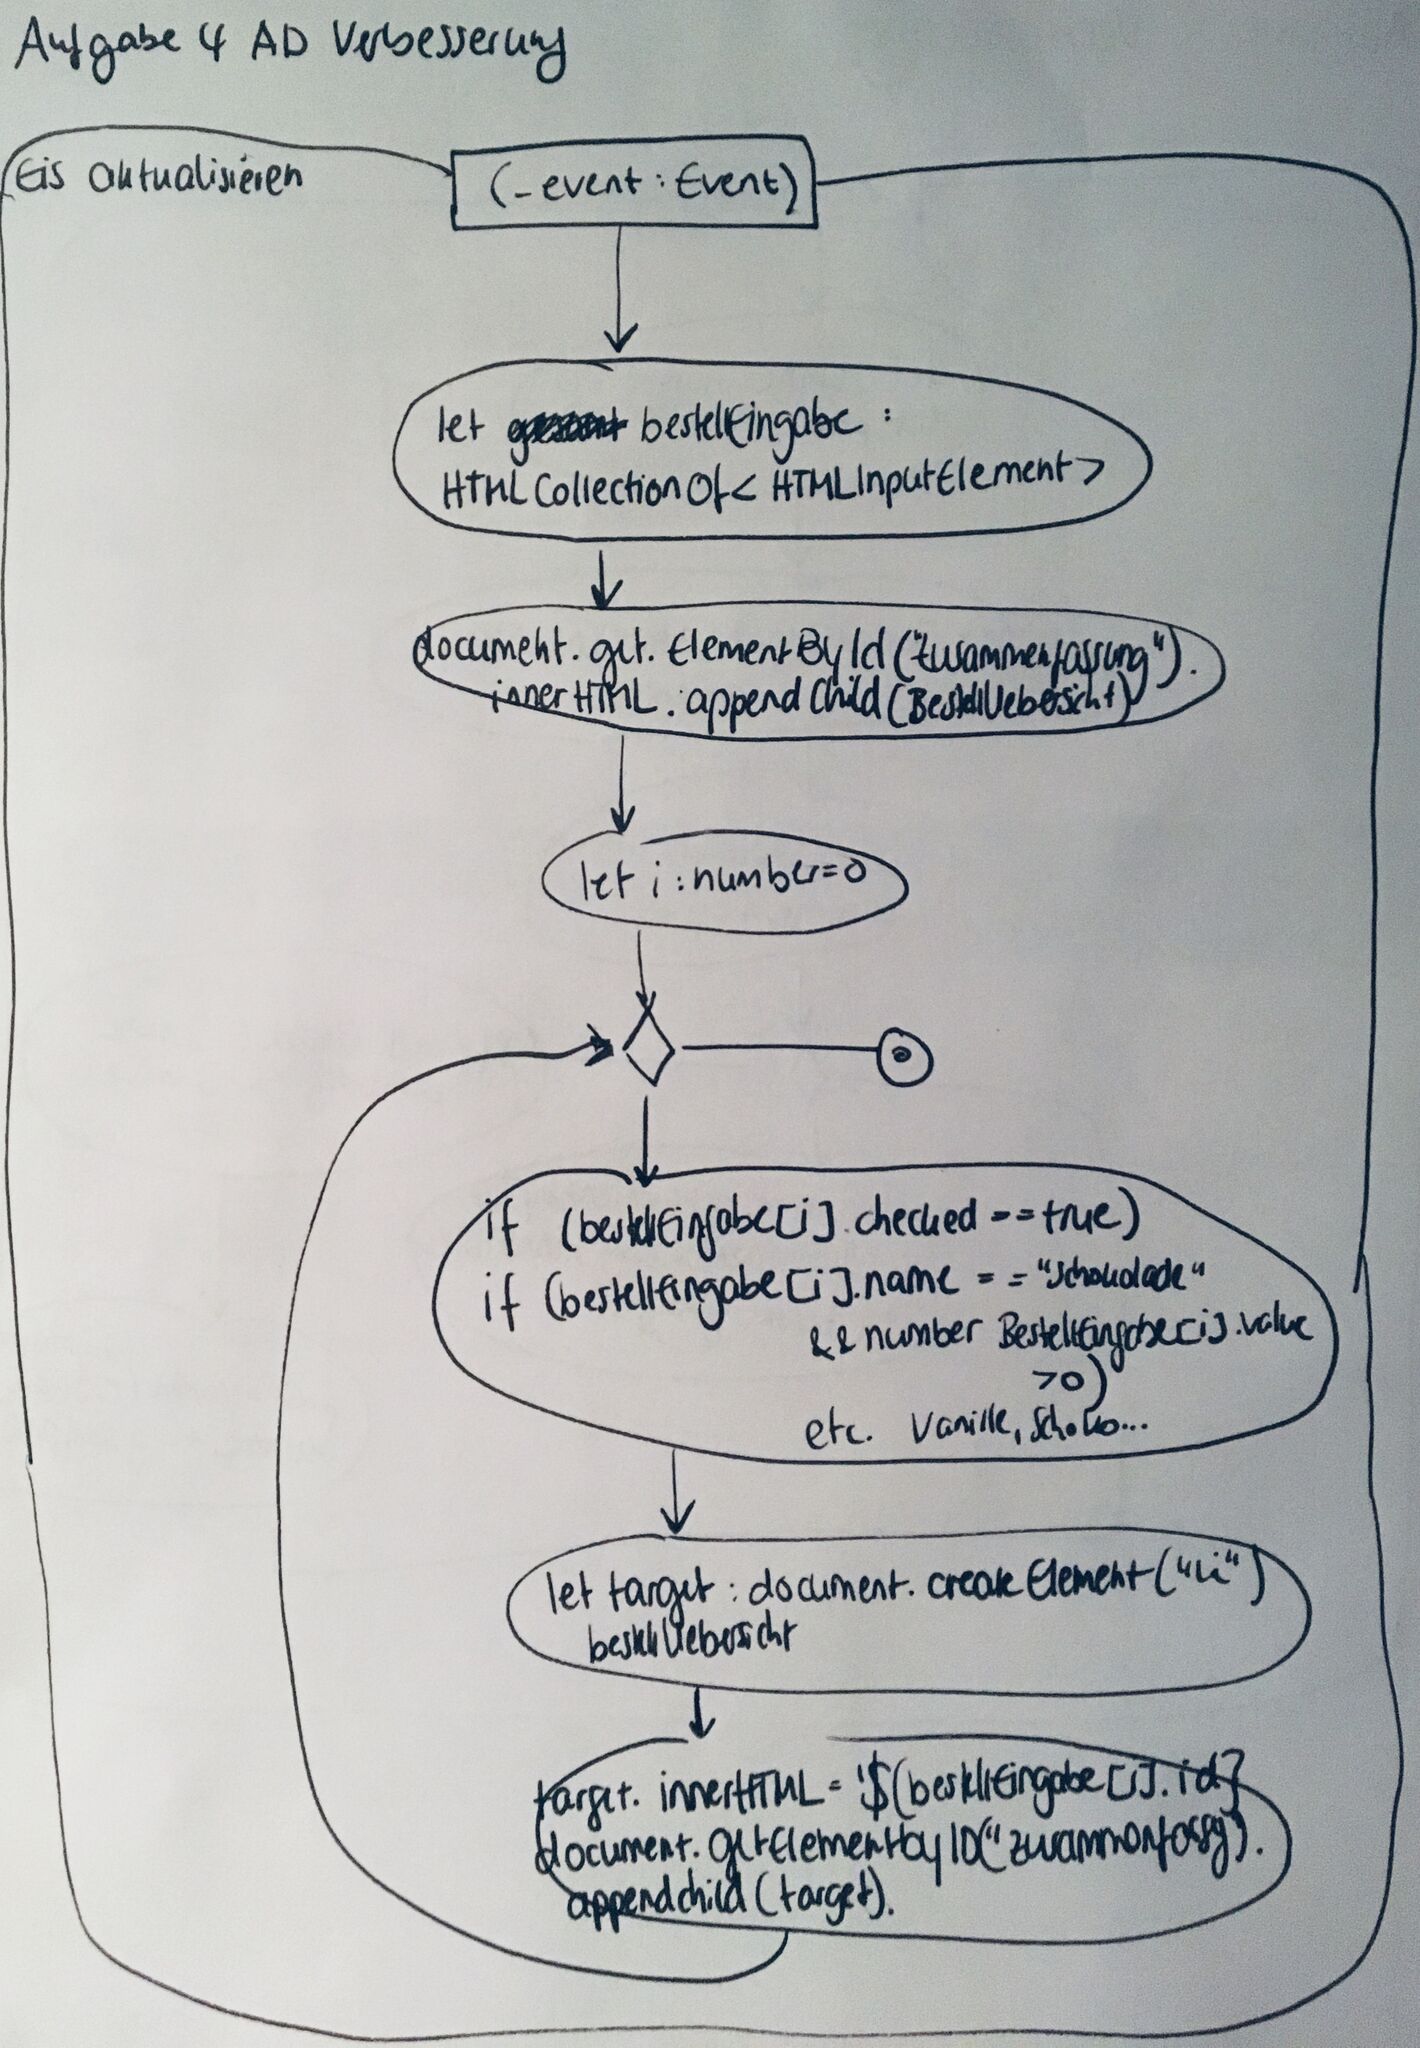 Aufgabe 4 AD Verbesserung
Eis aktualisieren
(_event : Event)
let bestellEingabe :
HTMLCollectionOf< HTMLInputElement >
document.get.ElementById("Zusammenfassung").
innerHTML.appendChild(BestellUebersicht)
let i : number=0
if (bestellEingabe[i].checked ==true)
if (bestellEingabe[i].name == "Schokolade"
&& number BestellEingabe[i].value
>0)
etc. Vanille, Schoko...
let target : document.createElement("Li")
bestellUebersicht
target.innerHTML= '$(bestellEingabe[i].id}
document.getElementbyID("zusammenfassg").
appendchild(target).